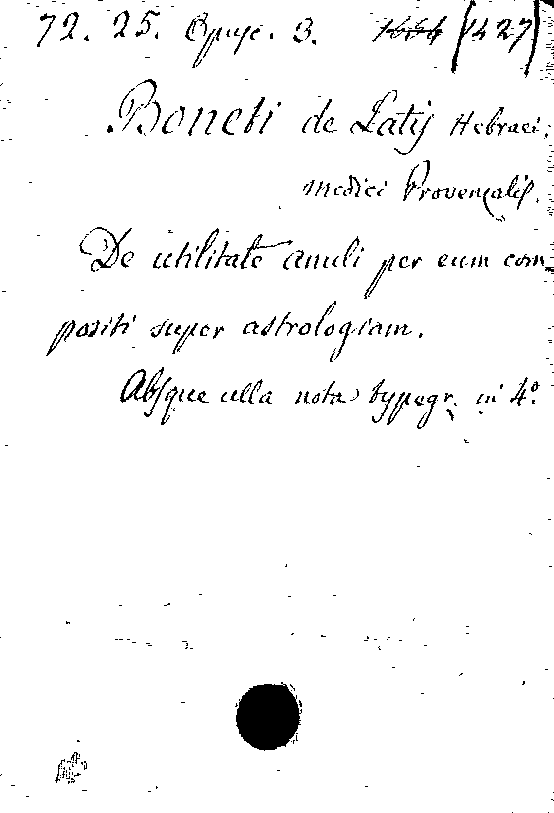 72. 25. Opusc. 3. 1684 (1427)
Boneti de Latis Hebraei,
medici Provencalis.
De utilitate anuli per eum com-
positi super astrologiam.
Absque ulla nota typogr. in 4º.